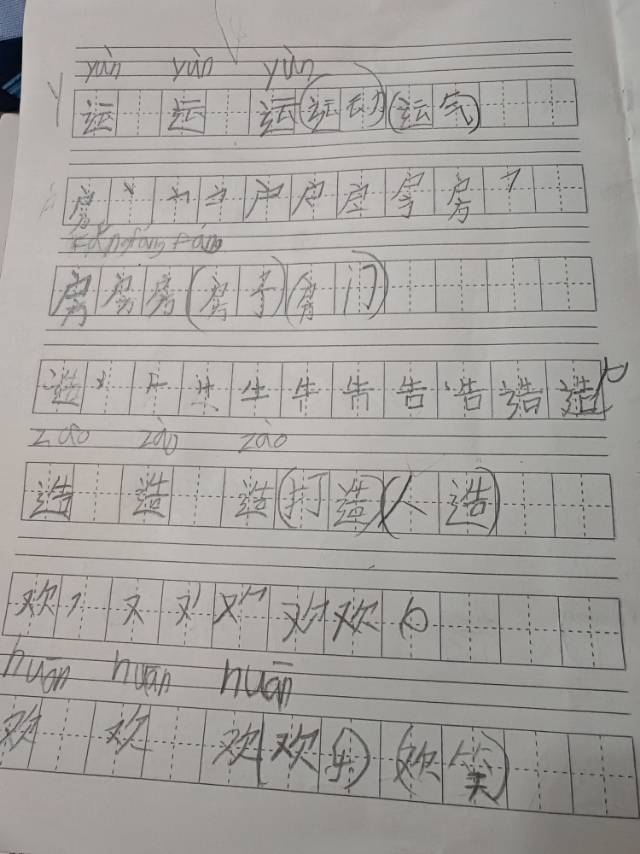 yùn yùn yùn
运 运 运(运动)(运气)
房 丶 户 户 房 7
fáng fáng fáng
房 房 房(房子)(房门)
造 牛 告 告 告 造
zào zào zào
造 造 造(打造)(人造)
欢 フ 又 欢 欢 6
huān huān huān
欢 欢 欢(欢乐)(欢笑)